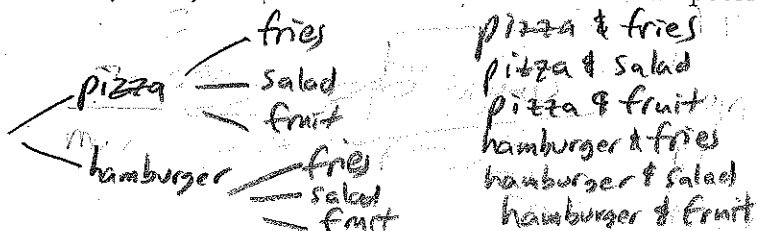 fries
pizza
salad
fruit
hamburger
fries
salad
fruit
pizza & fries
pizza & salad
pizza & fruit
hamburger & fries
hamburger & salad
hamburger & fruit